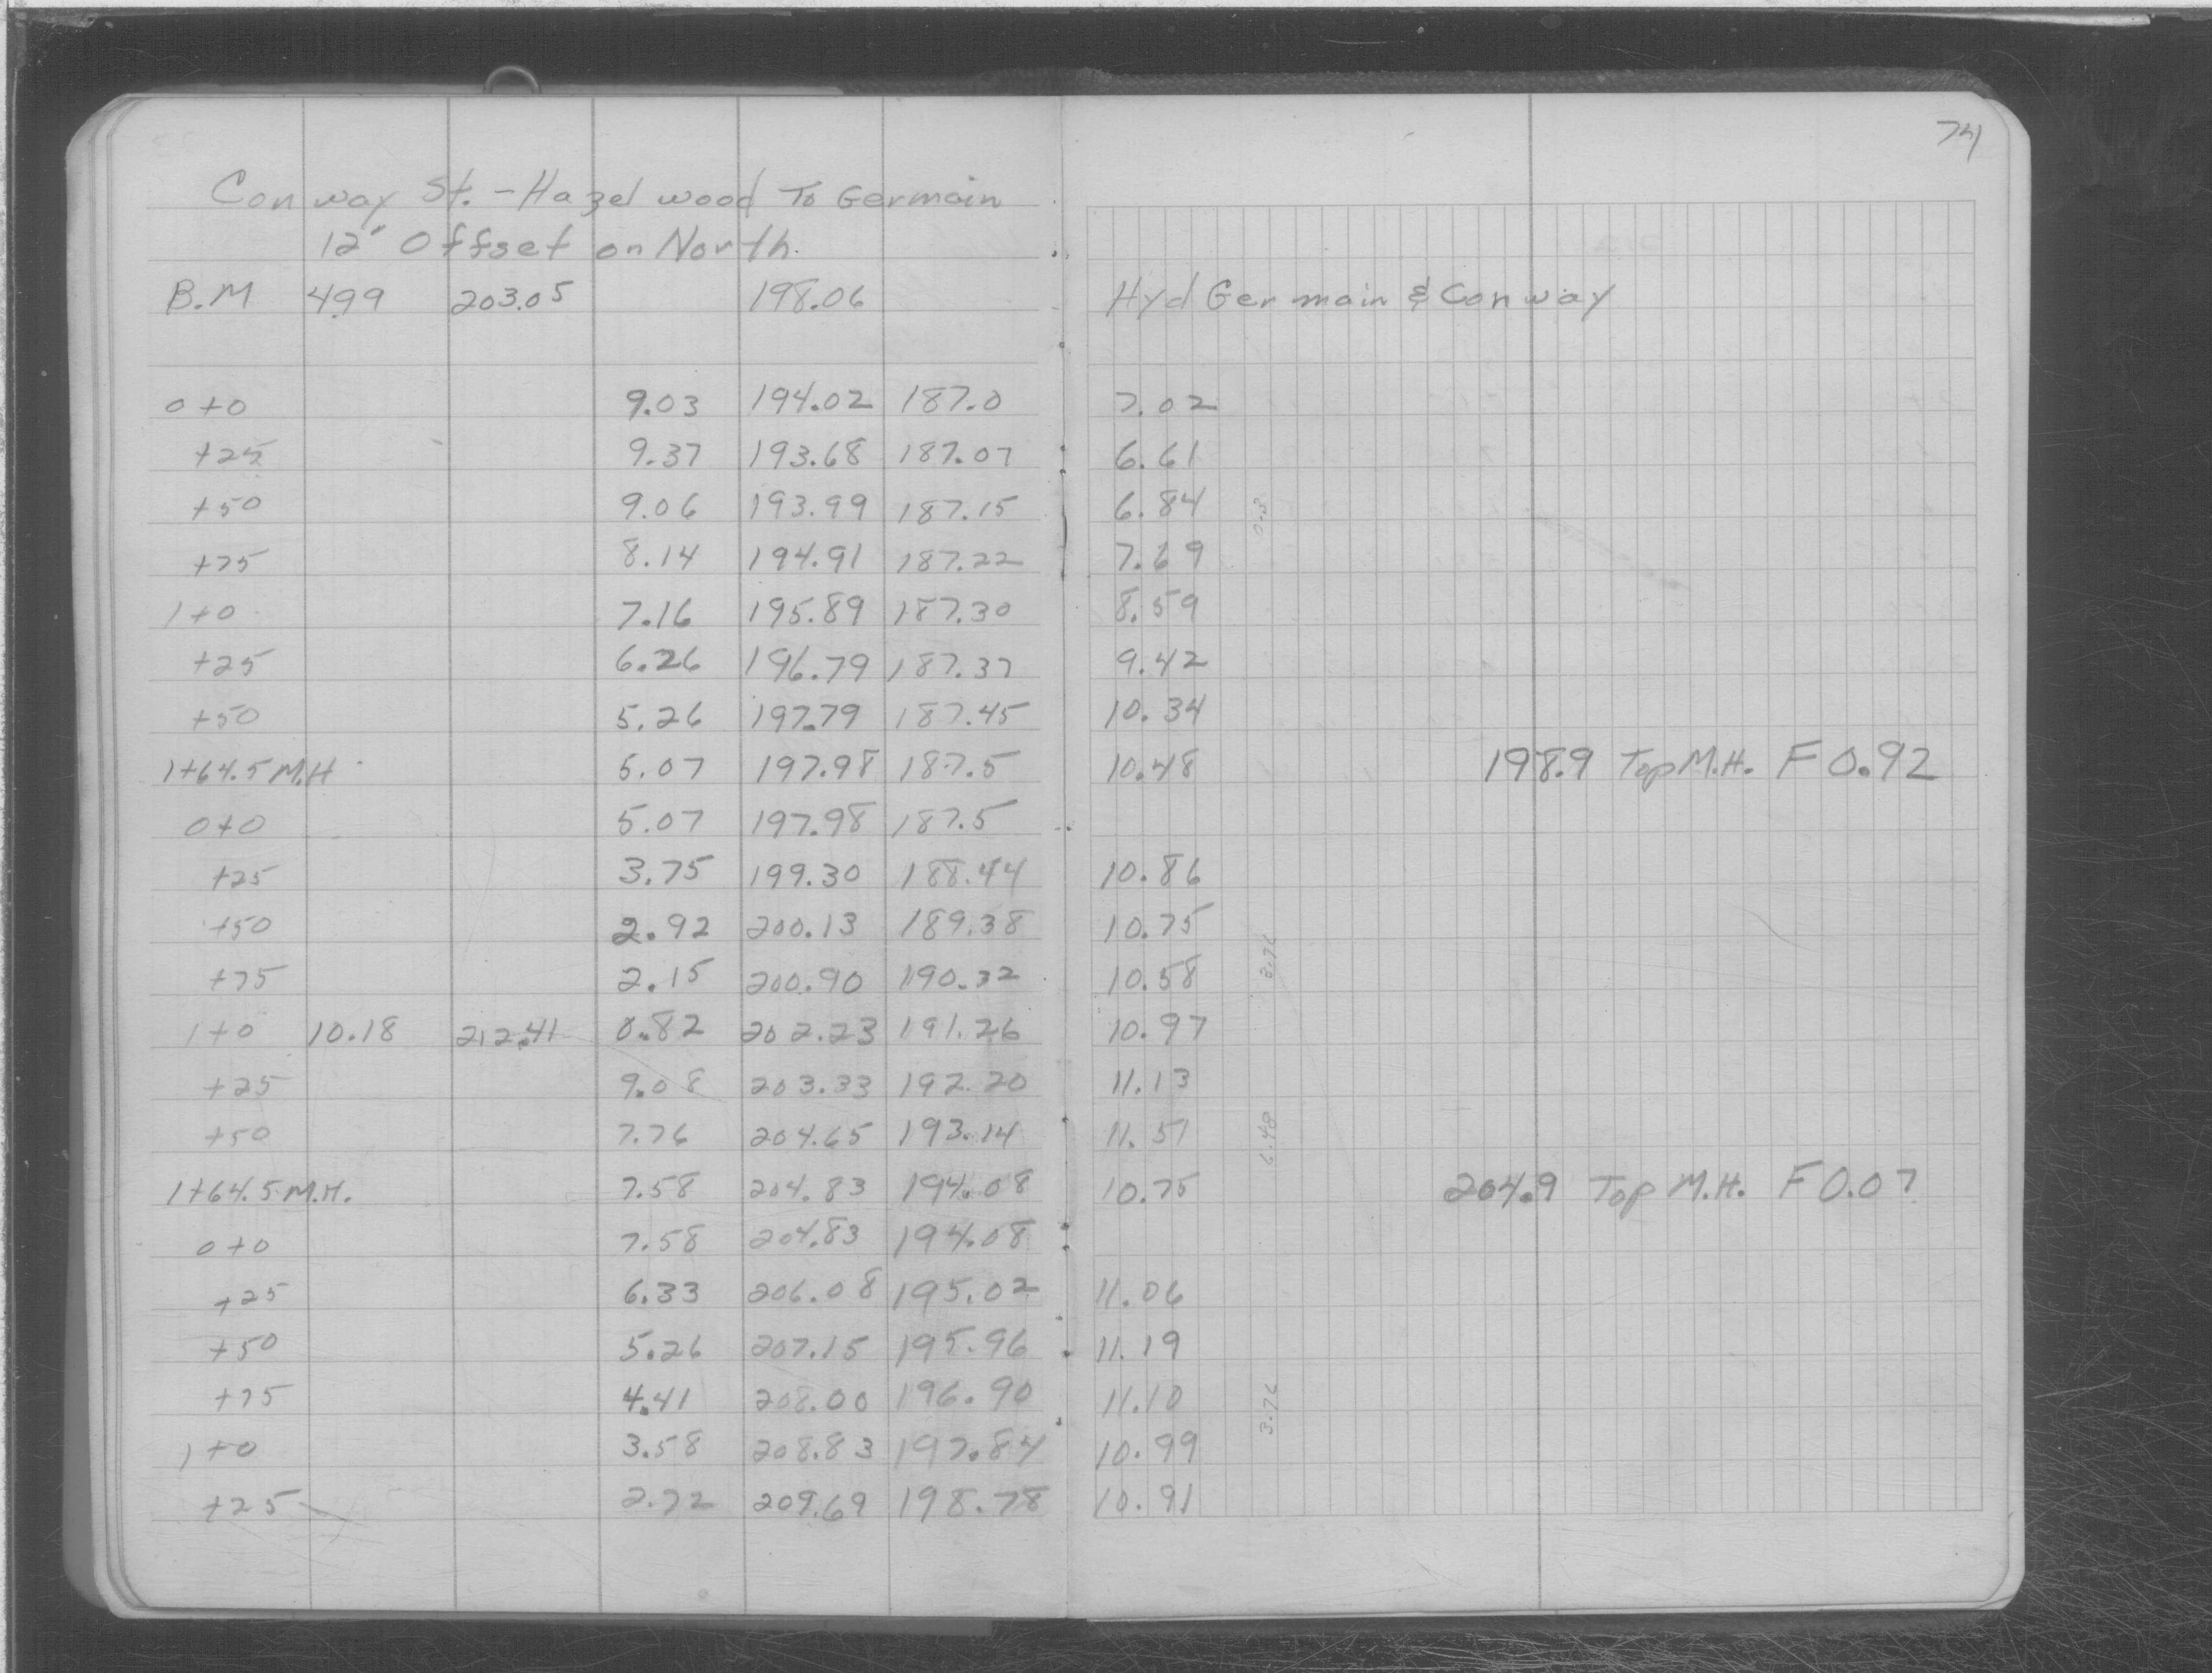 74
Conway St. - Hazelwood To Germain
12" Offset on North.
B.M 4.99 203.05 198.06 Hyd Germain & Conway
0+0 9.03 194.02 187.0 7.02
+25 9.37 193.68 187.07 6.61
+50 9.06 193.99 187.15 6.84 0.3
+75 8.14 194.91 187.22 7.69
1+0 7.16 195.89 187.30 8.59
+25 6.26 196.79 187.37 9.42
+50 5.26 197.79 187.45 10.34
1+64.5 M.H 5.07 197.98 187.5 10.48 198.9 Top M.H. F 0.92
0+0 5.07 197.98 187.5
+25 3.75 199.30 188.44 10.86
+50 2.92 200.13 189.38 10.75
+75 2.15 200.90 190.32 10.58 3.76
1+0 10.18 212.41 0.82 202.23 191.26 10.97
+25 9.08 203.33 192.20 11.13
+50 7.76 204.65 193.14 11.51 6.48
1+64.5 M.H. 7.58 204.83 194.08 10.75 204.9 Top M.H. F 0.07
0+0 7.58 204.83 194.08
+25 6.33 206.08 195.02 11.06
+50 5.26 207.15 195.96 11.19
+75 4.41 208.00 196.90 11.10 3.76
1+0 3.58 208.83 197.84 10.99
+25 2.72 209.69 198.78 10.91